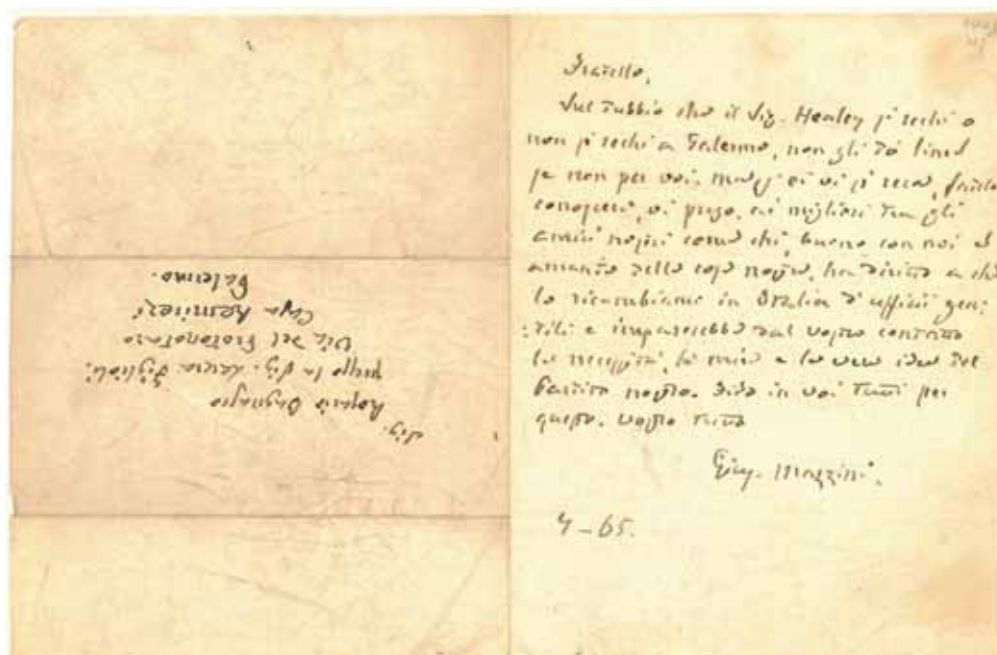 Sig.
Rosario Bagnasco
presso la Sig. Laura
Via del Protonotaro
Casa
Palermo.
Fratello,
Sul dubbio che il Sig. Healey si rechi o
non si rechi a Palermo, non gli dò linea
se non per voi. Ma s'ei vi si reca, fatelo
conoscere, vi prego, ai migliori tra gli
amici nostri come chi, buono con noi ed
amante della cosa nostra, ha diritto a che
lo ricambiamo in Italia d'ufficii gen:
:tili e imparerebbe dal vostro contatto
le necessità, la mira e la vera idea del
Partito nostro. Fido in voi tutti per
questo. Vostro tutto
Gius. Mazzini.
4-65.